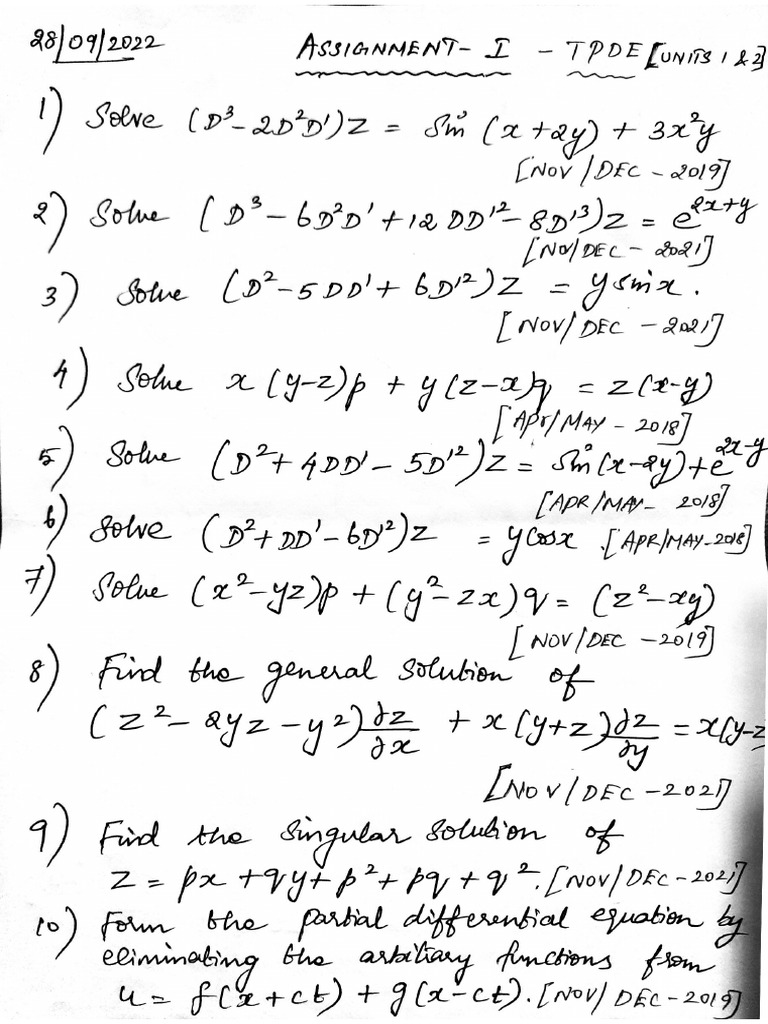 28/09/2022 ASSIGNMENT- I - TPDE [UNITS 1 & 2]
1) Solve (D³-2D²D')Z = Sin (x+2y) + 3x²y
[NOV/DEC - 2019]
2) Solve (D³-6D²D'+12DD'²-8D'³)Z = e^{2x+y}
[NOV/DEC - 2021]
3) Solve (D²-5DD'+6D'²)Z = y sinx.
[NOV/DEC - 2021]
4) Solve x(y-z)p + y(z-x)q = z(x-y)
[Apr/MAY - 2018]
5) Solve (D²+4DD'-5D'²)Z = Sin(x-2y)+e^{2x-y}
[APR/MAY- 2018]
6) Solve (D²+DD'-6D'²)Z = yCosx.[APR/MAY-2018]
7) Solve (x²-yz)p + (y²-zx)q = (z²-xy)
[NOV/DEC - 2019]
8) Find the general solution of
(z²-2yz-y²)∂z/∂x + x(y+z)∂z/∂y = x(y-z
[NOV/DEC - 2021]
9) Find the Singular Solution of
Z = px+qy+p²+pq+q².[NOV/DEC-2021]
10) Form the partial differential equation by
eliminating the arbitiary functions from
u = f(x+ct) + g(x-ct).[NOV/DEC-2019]